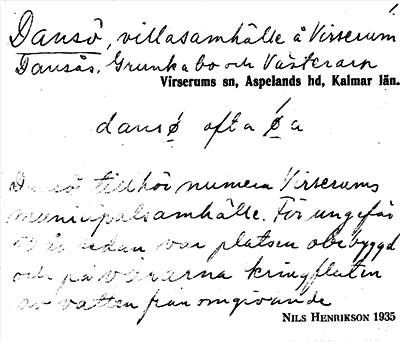 Dansö, villasamhälle å Virserum
Dansås, Grunkabo och Västerarp
Virserums sn, Aspelands hd, Kalmar län.
dansø ofta ǿ a
Dansö tillhör numera Virserums
municipalsamhälle. För ungefär
år sedan var platsen obebyggd
och på vårarna kringfluten
av vatten från omgivande
NILS HENRIKSON 1935